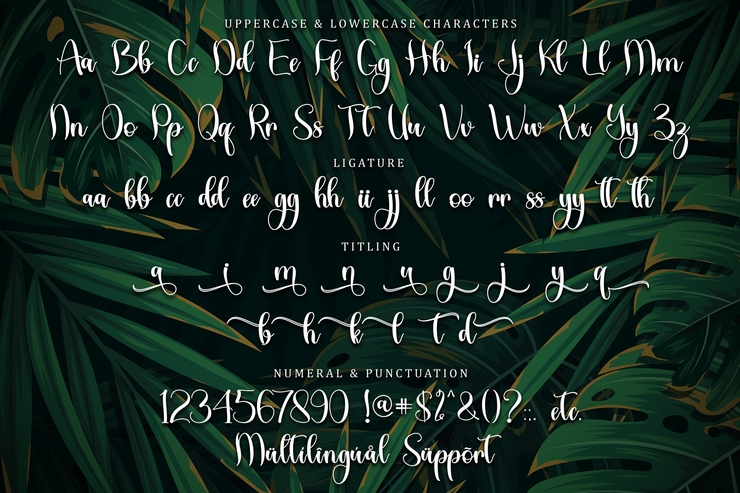 UPPERCASE & LOWERCASE CHARACTERS
Aa Bb Cc Dd Ee Ff Gg Hh Ii Jj Kk Ll Mm
Nn Oo Pp Qq Rr Ss Tt Uu Vv Ww Xx Yy Zz
LIGATURE
aa bb cc dd ee gg hh ii jj ll oo rr ss yy tt th
TITLING
a i m n u g j y q
b h k l t d
NUMERAL & PUNCTUATION
1234567890 !@#$%^&()?:;. etc.
Mültilîngúål Süppõrt